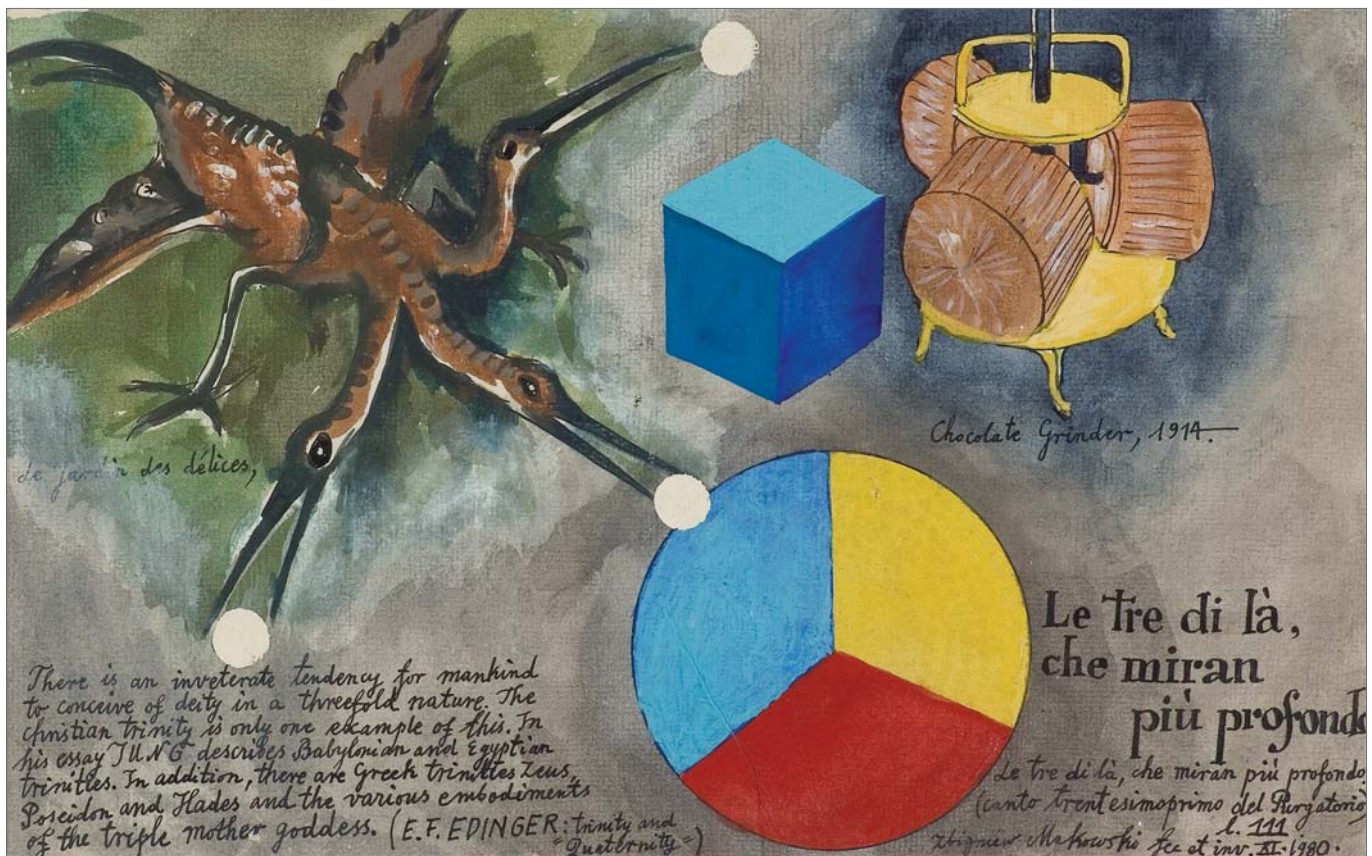 Le jardin des délices,
Chocolate Grinder, 1914.
Le tre di là,
che miran
più profond
There is an inveterate tendency for mankind
to conceive of deity in a threefold nature. The
christian trinity is only one example of this. In
his essay JUNG describes Babylonian and Egyptian
trinities. In addition, there are Greek trinities Zeus,
Poseidon and Hades and the various embodiments
of the triple mother goddess. (E.F. EDINGER: trinity and
"Quaternity")
Le tre di là, che miran più profondo
(canto trentesimoprimo del Purgatorio
l. 111
Zbigniew Makowski fec et inv. XI.1980.